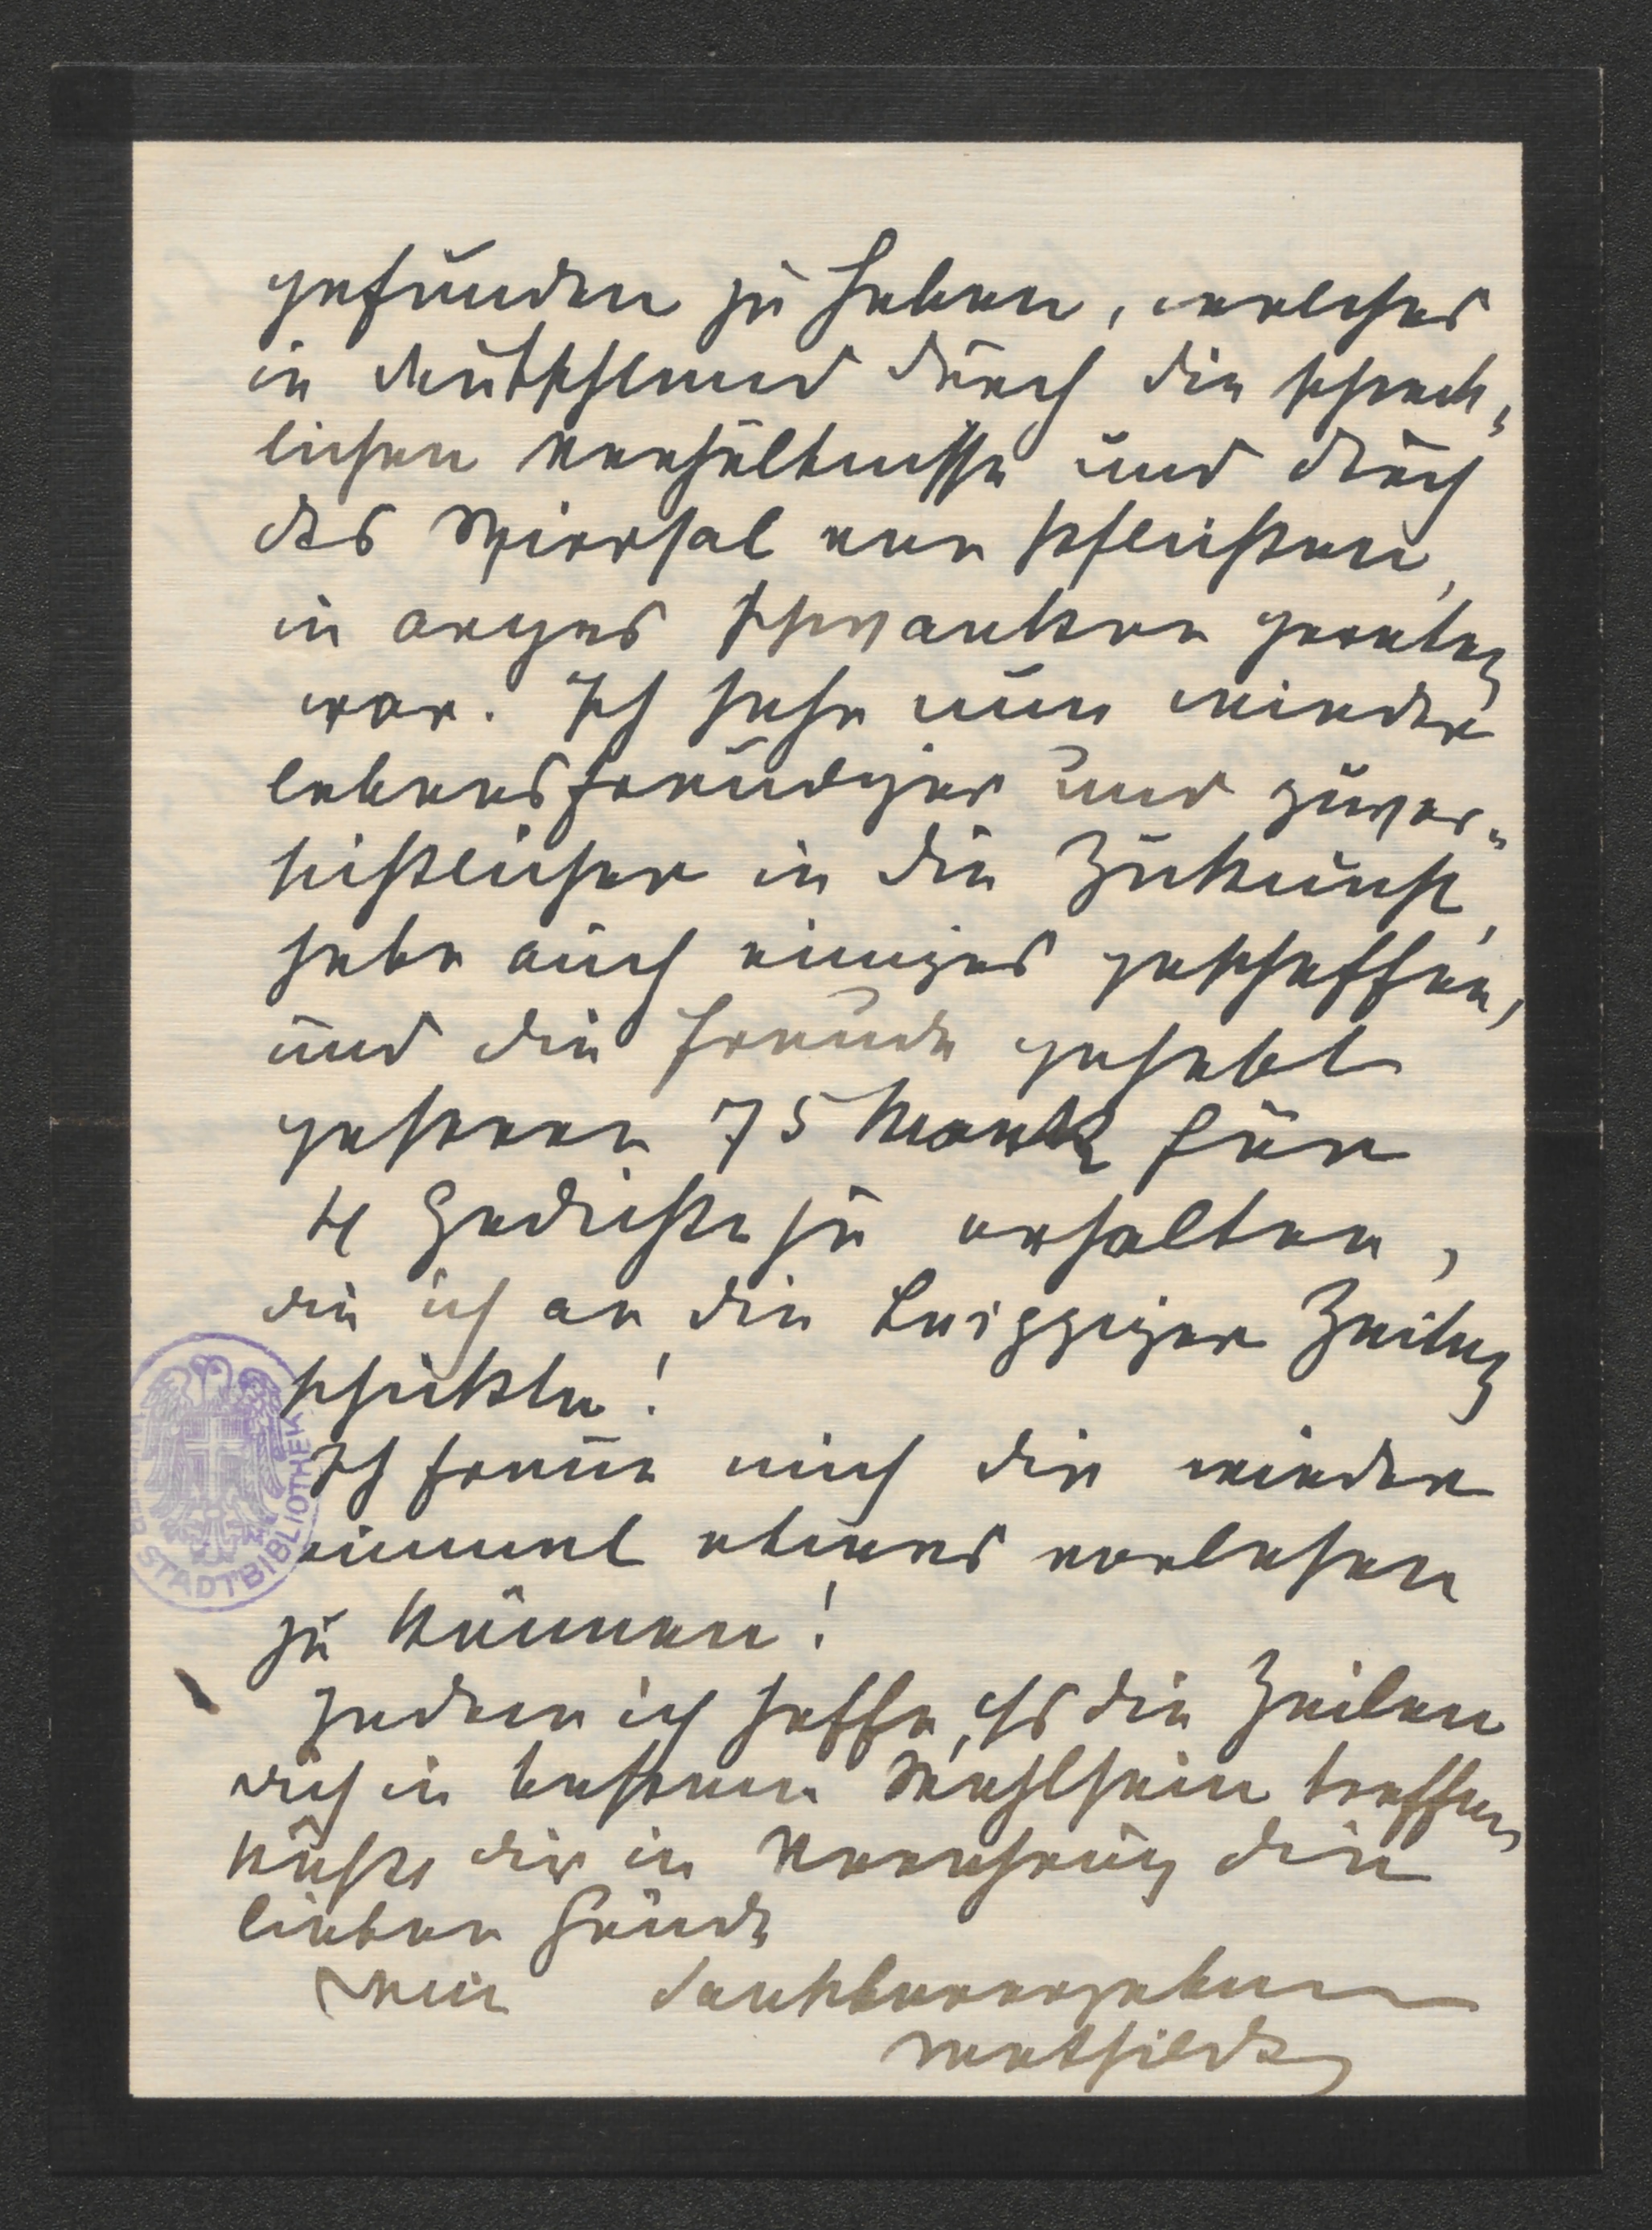 gefunden zu haben, welches
in deutschland durch die schreck,
lichen Verhältnisse und durch
das Wirrsal von schlechten,
in arges Schwanken geraten
war. Ich sehe nun wieder
lebensfreudiger und zuver-
sichtlicher in die Zukunft,
habe auch einiges geschaffen,
und die Freude gehabt
gestern 75 Mark für
4 Gedichte zu erhalten,
die ich an die Leipziger Zeitung
schickte!
Ich freue mich dir wieder
einmal etwas vorlesen
zu können!
Indem ich hoffe, dß die Zeilen
dich in bestem Wohlsein treffen,
küßt dir in Verehrung die
lieben Hände
Deine dankbarergebene
Mathilde
STADTBIBLIOTHEK